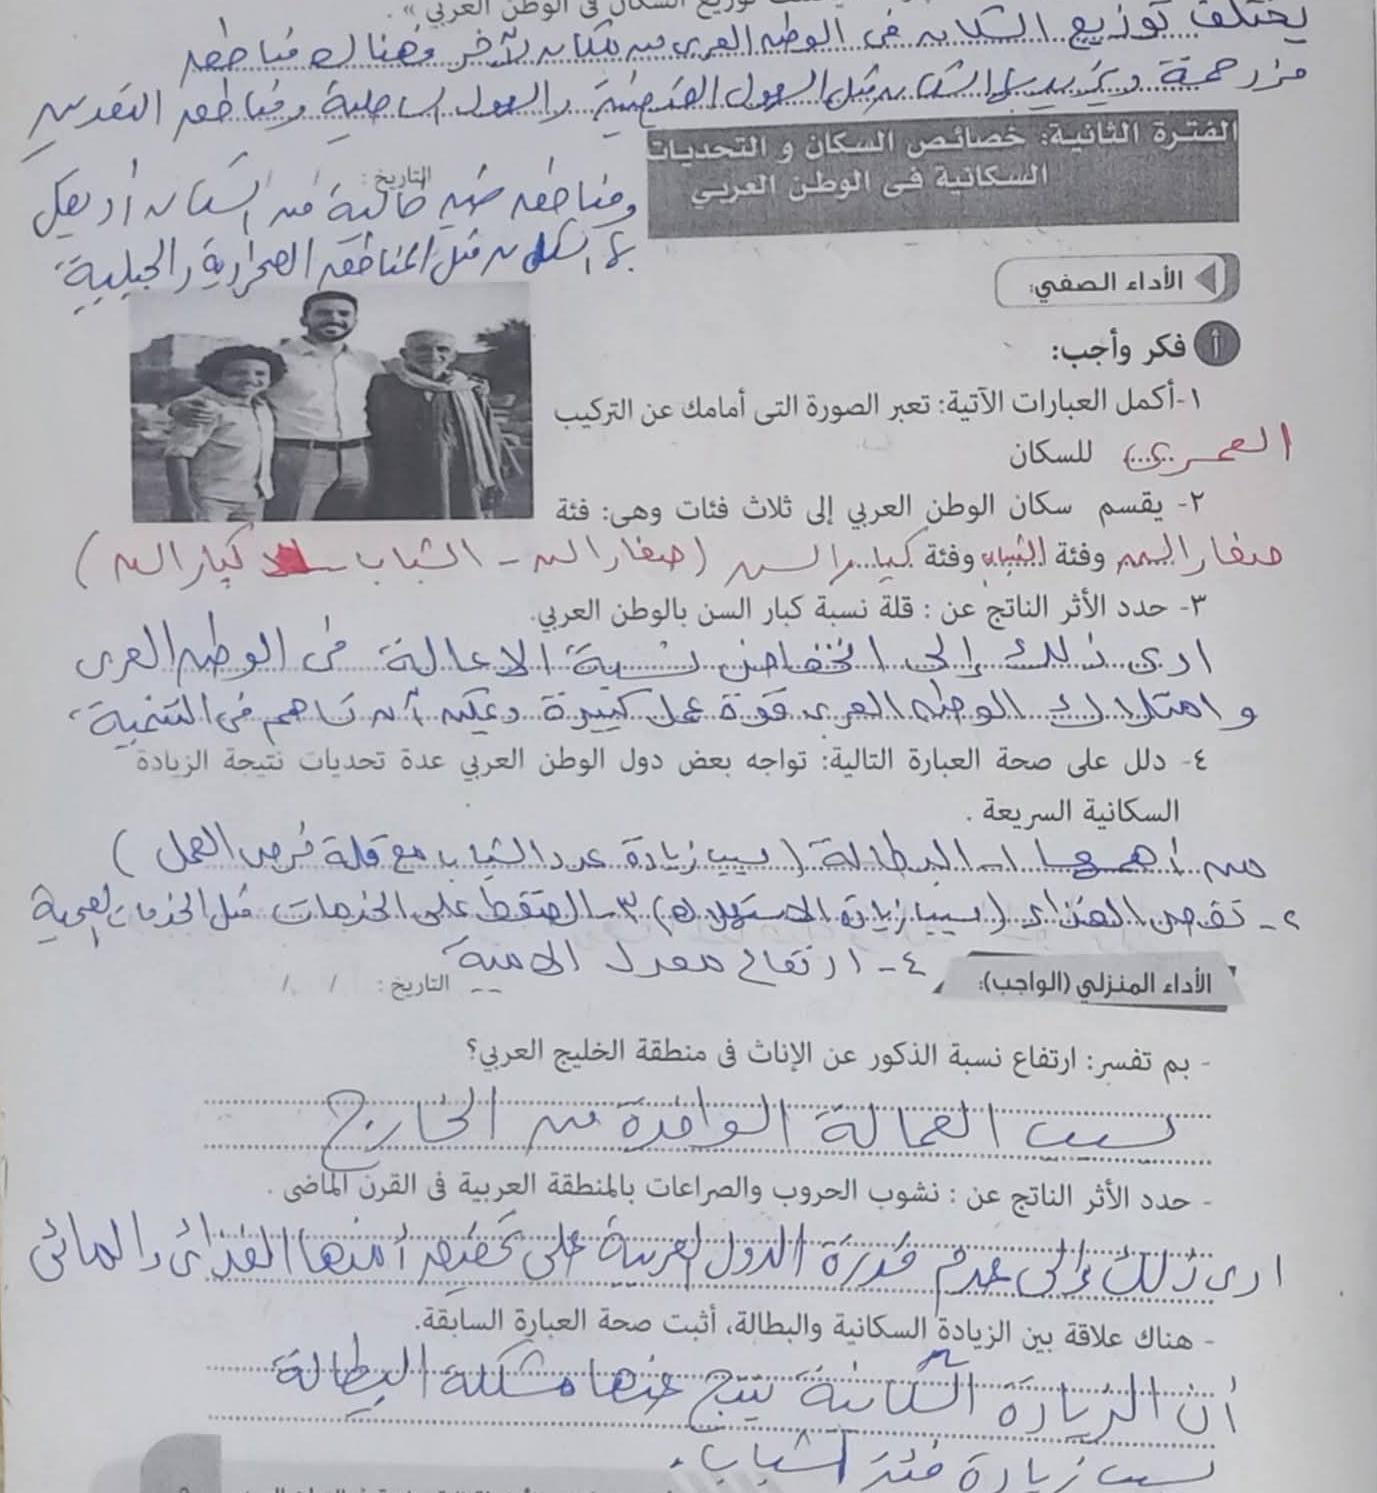 توزيع السكان فى الوطن العربي ».
يختلف توزيع السكان فى الوطن العربى من مكان لآخر فهناك مناطق
مزدحمة ويتركز بها السكان مثل السهول الفيضية والسهول الساحلية ومناطق التعدين
الفترة الثانية: خصائص السكان و التحديات
السكانية فى الوطن العربي
التاريخ :
ومناطق خالية من السكان أو يقل
بها السكان مثل المناطق الصحراوية والجبلية
الأداء الصفي:
أ فكر وأجب:
١-أكمل العبارات الآتية: تعبر الصورة التى أمامك عن التركيب
العمرى للسكان
٢- يقسم سكان الوطن العربي إلى ثلاث فئات وهى: فئة
صغار السن وفئة الشباب وفئة كبار السن (صغار السن - الشباب - كبار السن)
٣- حدد الأثر الناتج عن : قلة نسبة كبار السن بالوطن العربي.
ادى ذلك إلى انخفاض نسبة الاعالة فى الوطن العربى
وامتلاك الوطن العربى قوة عمل كبيرة ويمكن أن تساهم فى التنمية
٤- دلل على صحة العبارة التالية: تواجه بعض دول الوطن العربي عدة تحديات نتيجة الزيادة
السكانية السريعة .
من أهمها ١- البطالة (بسبب زيادة عدد الشباب مع قلة فرص العمل)
٢- نقص الغذاء (بسبب زيادة الاستهلاك) ٣- الضغط على الخدمات مثل الخدمات الصحية
٤- ارتفاع معدل الامية
الأداء المنزلي (الواجب):
التاريخ : / /
- بم تفسر: ارتفاع نسبة الذكور عن الإناث فى منطقة الخليج العربي؟
بسبب العمالة الوافدة من الخارج
- حدد الأثر الناتج عن : نشوب الحروب والصراعات بالمنطقة العربية فى القرن الماضى .
ادى ذلك إلى عدم قدرة الدول العربية على تحقيق أمنها الغذائى والمائى
- هناك علاقة بين الزيادة السكانية والبطالة، أثبت صحة العبارة السابقة.
أن الزيادة السكانية ينتج عنها مشكلة البطالة
بسبب زيادة فئة الشباب.